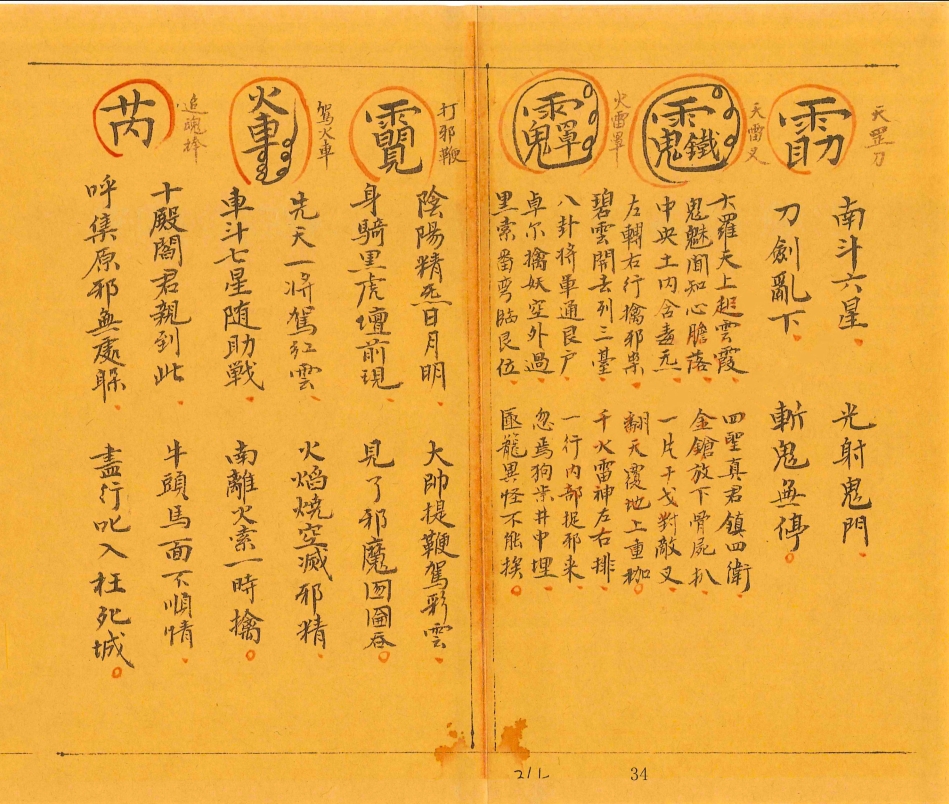 天罡刀
南斗六星 光射鬼門
刀劍亂下 斬鬼無停
天雷叉
大羅天上起雲霞 四聖真君鎮四衛
鬼魅聞知心膽落 金鎗放下骨屍扒
中央土内含毒炁 一片干戈對敵叉
左轉右行擒邪祟 翻天覆地上重枷
火雷罩
碧雲開去列三臺 千火雷神左右排
八卦將軍通艮户 一行内部捉邪来
卓尔擒妖空外過 忽焉狗柴井中埋
黑索 臨艮位 匼籠異怪不能挨
打邪鞭
陰陽精炁日月明 大帥提鞭駕彩雲
身騎黑虎壇前現 見了邪魔囫圇吞
駕火車
火車
先天一將駕紅雲 火焰燒空滅邪精
車斗七星随助戰 南離火索一時擒
追魂
十殿閻君親到此 牛頭馬面不順情
呼集原邪無處躲 盡行叱入枉死城
34